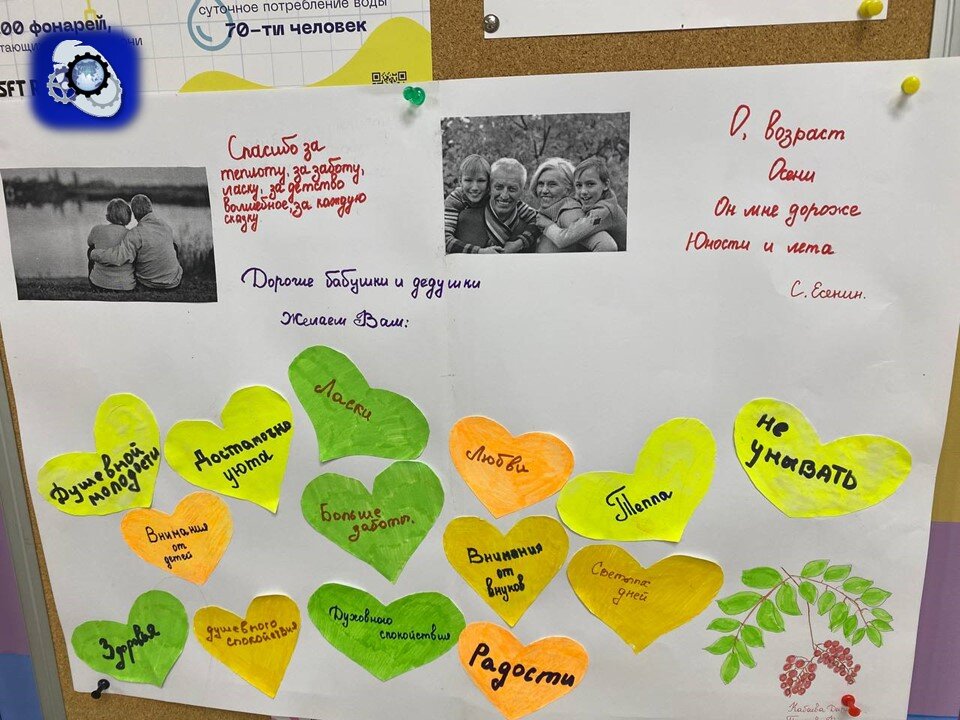 00 фонарей,
суточное потребление воды
70-ти человек
Спасибо за
теплоту, за заботу,
ласку, за детство
волшебное, за каждую
сказку.
О, возраст
Осени
Он мне дороже
Юности и лета
С. Есенин.
Дорогие бабушки и дедушки
Желаем Вам:
Душевной
молодости
Достаточно
уюта
Ласки
Любви
Тепла
не
унывать
Внимания
от
детей
Больше
заботы.
Внимания
от
внуков
Светлых
дней
Здоровья
душевного
спокойствия
Духовного
спокойствия
Радости